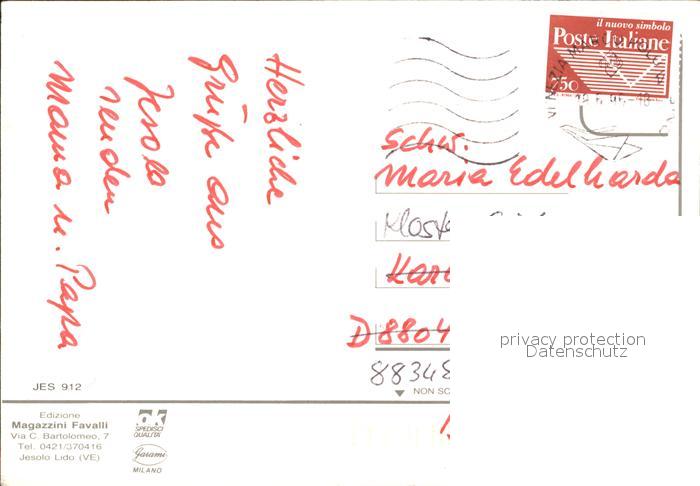 Herzliche
Grüße aus
Jesolo
senden
Mama u. Papa
il nuovo simbolo
Poste Italiane
750
Schw.
Maria Edelharda
Klost
Kar
D 8804
88348
NON SC
privacy protection
Datenschutz
JES 912
Edizione
Magazzini Favalli
Via C. Bartolomeo, 7
Tel. 0421/370416
Jesolo Lido (VE)
ok
SPEDISCI
QUALITA'
Garami
MILANO